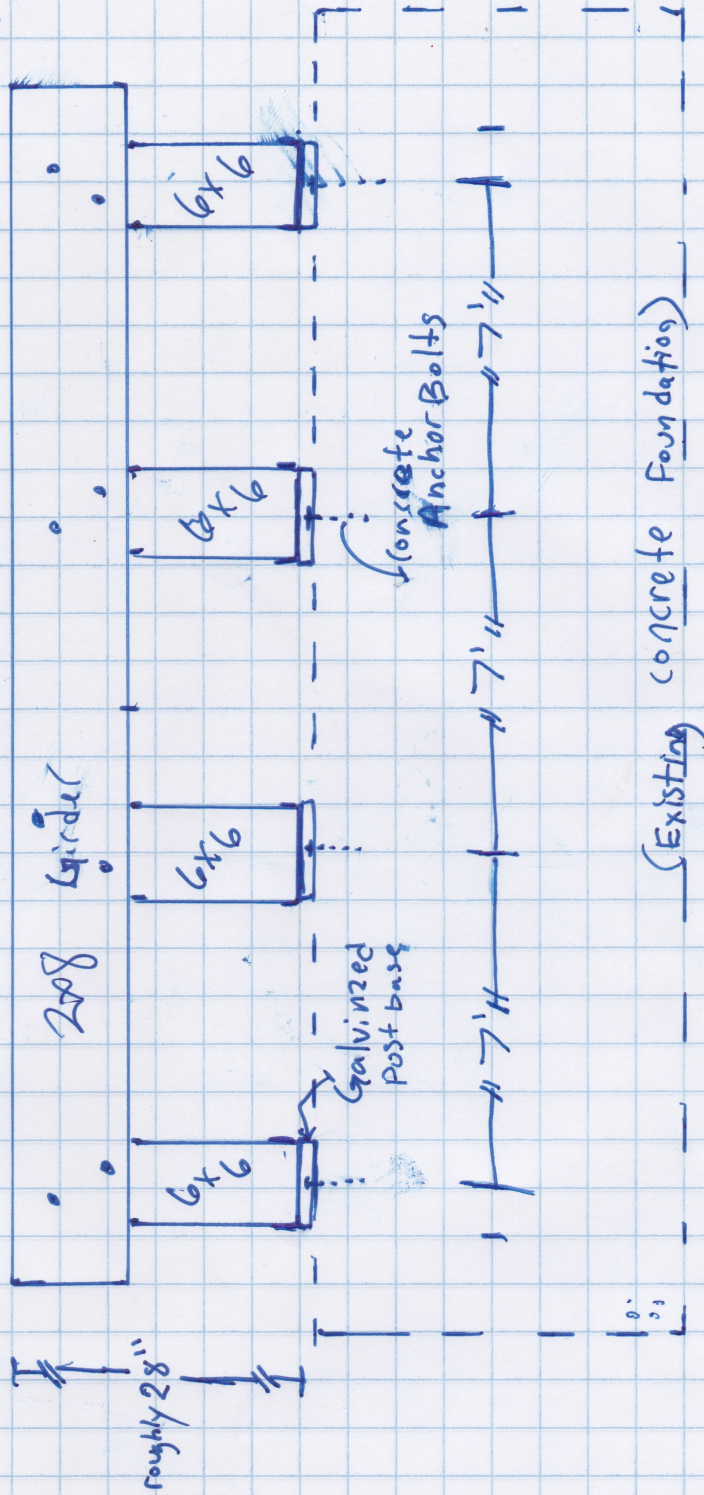 2x8 Girder
6x6
6x6
6x6
6x6
roughly 28"
Galvinzed
Post base
Concrete
Anchor Bolts
7'
7'
7'
(Existing Concrete Foundation)